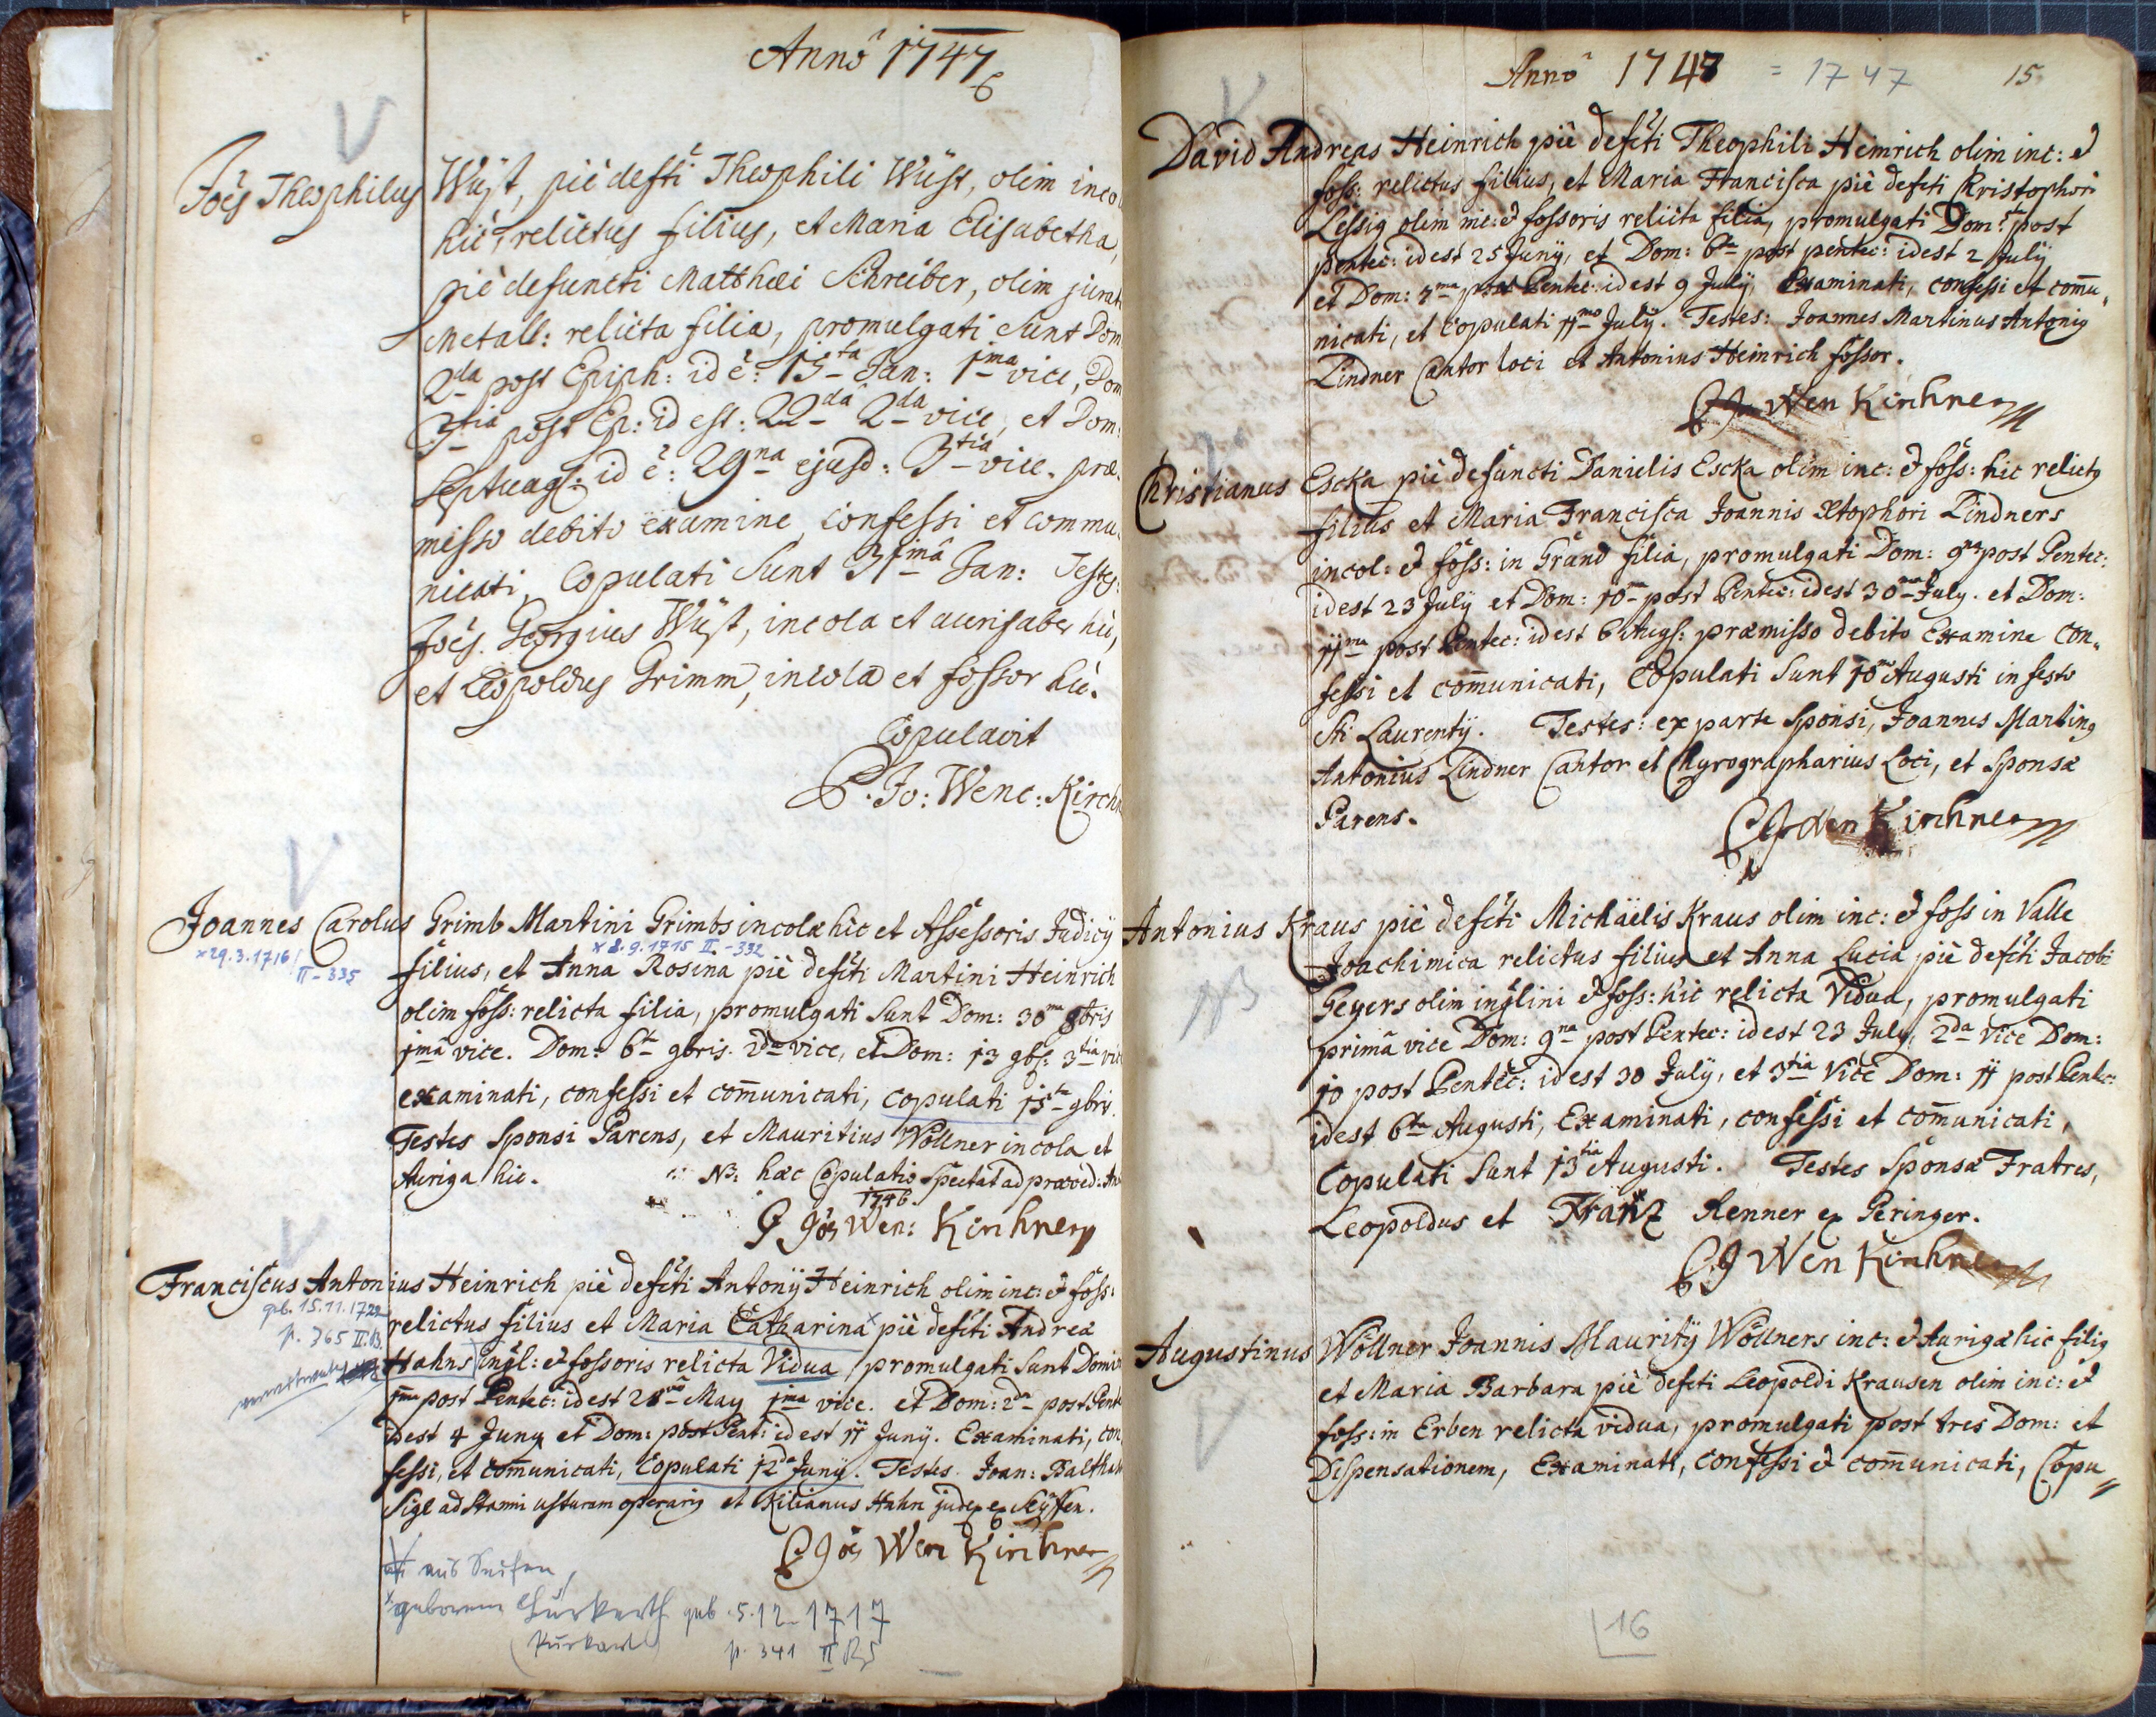 Annô 1747
6
Joẽs Theophilus Wüst, piè defti Theophili Wüst, olim inco
hic, relictus filius, et Maria Elisabetha,
piè defuncti Matthæi Schreiber, olim jurat
Metall: relicta filia, promulgati sunt Dom
2da post Epiph: id ẽ: 15ta Jan: 1ma vice, Dom
3tia post Ep: id est: 22da 2da vice, et Dom:
Septuag: id ẽ: 29na ejusd: 3tia vice. præ-
misso debito examine, confessi et commu-
nicati, Copulati sunt 31ma Jan: Testes:
Joẽs. Georgius Wüst, incola et aurifaber hic,
et Leopoldus Grimm, incola et fossor hic.
Copulavit
P. Jo: Wenc: Kirchn
Joannes Carolus Grimb Martini Grimbs incolæ hic et Assessoris Judicÿ
×29.3.1716 II-335
× 8.9.1715 II-332
filius, et Anna Rosina piè defcti Martini Heinrich
olim foss: relicta filia, promulgati sunt Dom: 30ma 8bris
1ma vice. Dom: 6ta 9bris. 2da vice, et Dom: 13 9bs: 3tia vice
examinati, confessi et com̃unicati, copulati 15ta 9bris.
Testes Sponsi Parens, et Mauritius Wöllner incola et
Auriga hic. NB: hæc Copulatio spectat ad præced: An
1746.
P Joẽs Wen: Kirchner
Franciscus Antonius Heinrich piè defcti Antonÿ Heinrich olim inc: et foss:
geb. 15.11.1722
p. 365 II.B.
relictus filius et Maria Catharina × piè defcti Andreæ
Hahns inql: et fossoris relicta Vidua, promulgati sunt Domin
1ma post Pentec: id est 28va May 1ma vice. et Dom: 2da post Pent
idest 4 Juny et Dom: post Pent: id est 11 Junÿ. Examinati, con
fessi, et com̃unicati, Copulati 12da Junÿ. Testes. Joan: Balthas
Sigl ad stanni usturam operarius et Kilianus Hahn judex ex Seÿffen.
P Joẽs Wen Kirchner
aus Seifen,
× geborene Pürkerth geb. 5.12.1717
(Pürkert) p. 341 II B
Annô 1748 = 1747 15
David Andreas Heinrich piè defcti Theophili Heinrich olim inc: et
foss: relictus filius, et Maria Francisca piè defcti Christophori
Lessig olim inc: et fossoris relicta filia, promulgati Dom: 5ta post
pentec: idest 25 Junÿ, et Dom: 6ta post pentec: idest 2 July
et Dom: 7ma post Pentec: idest 9 July, Examinati, confessi et com̃u-
nicati, et copulati 11mo Julÿ. Testes: Joannes Martinus Antonius
Lindner Cantor loci et Antonius Heinrich fossor.
P Jo Wen Kirchner
Christianus Escka piè defuncti Danielis Escka olim inc: et foss: hic relictus
filius et Maria Francisca Joannis Xtophori Lindners
incol: et foss: in Gründ filia, promulgati Dom: 9na post Pentec:
idest 23 Julÿ et Dom: 10ma post Pentec: idest 30ma July. et Dom:
11ma post Pentec: idest 6 Augs: præmisso debito Examine con-
fessi et com̃unicati, Copulati sunt 10mo Augusti in festo
Sti Laurentÿ. Testes: ex parte Sponsi, Joannes Martinus
Antonius Lindner Cantor et Chyrographarius Loci, et Sponsæ
Parens.
P Jo Wen Kirchner
Antonius Kraus piè defcti Michäelis Kraus olim inc: et foss in Valle
NB
Joachimica relictus filius et Anna Lucia piè defcti Jacobi
Geyers olim inqlini et foss: hic relicta Vidua, promulgati
primâ vice Dom: 9na post Pentec: idest 23 July, 2da Vice Dom:
10 post Pentec: idest 30 July, et 3tia Vice Dom: 11 post Pentec:
idest 6ta Augusti, Examinati, confessi et com̃unicati,
Copulati sunt 13tia Augusti. Testes Sponsæ Fratres,
Leopoldus et Frantz Renner ex Peringer.
P J Wen Kirchner
Augustinus Wöllner Joannis Mauritÿ Wöllners inc: et Aurigæ hic filius
et Maria Barbara piè defcti Leopoldi Krausen olim inc: et
foss: in Erben relicta vidua, promulgati post tres Dom: et
Dispensationem, Examinati, confessi et com̃unicati, Copu-
16